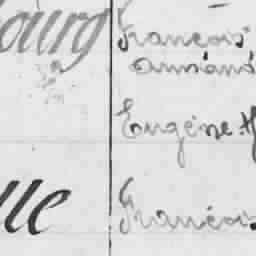 ourg François
Amand
Eugène
lle François